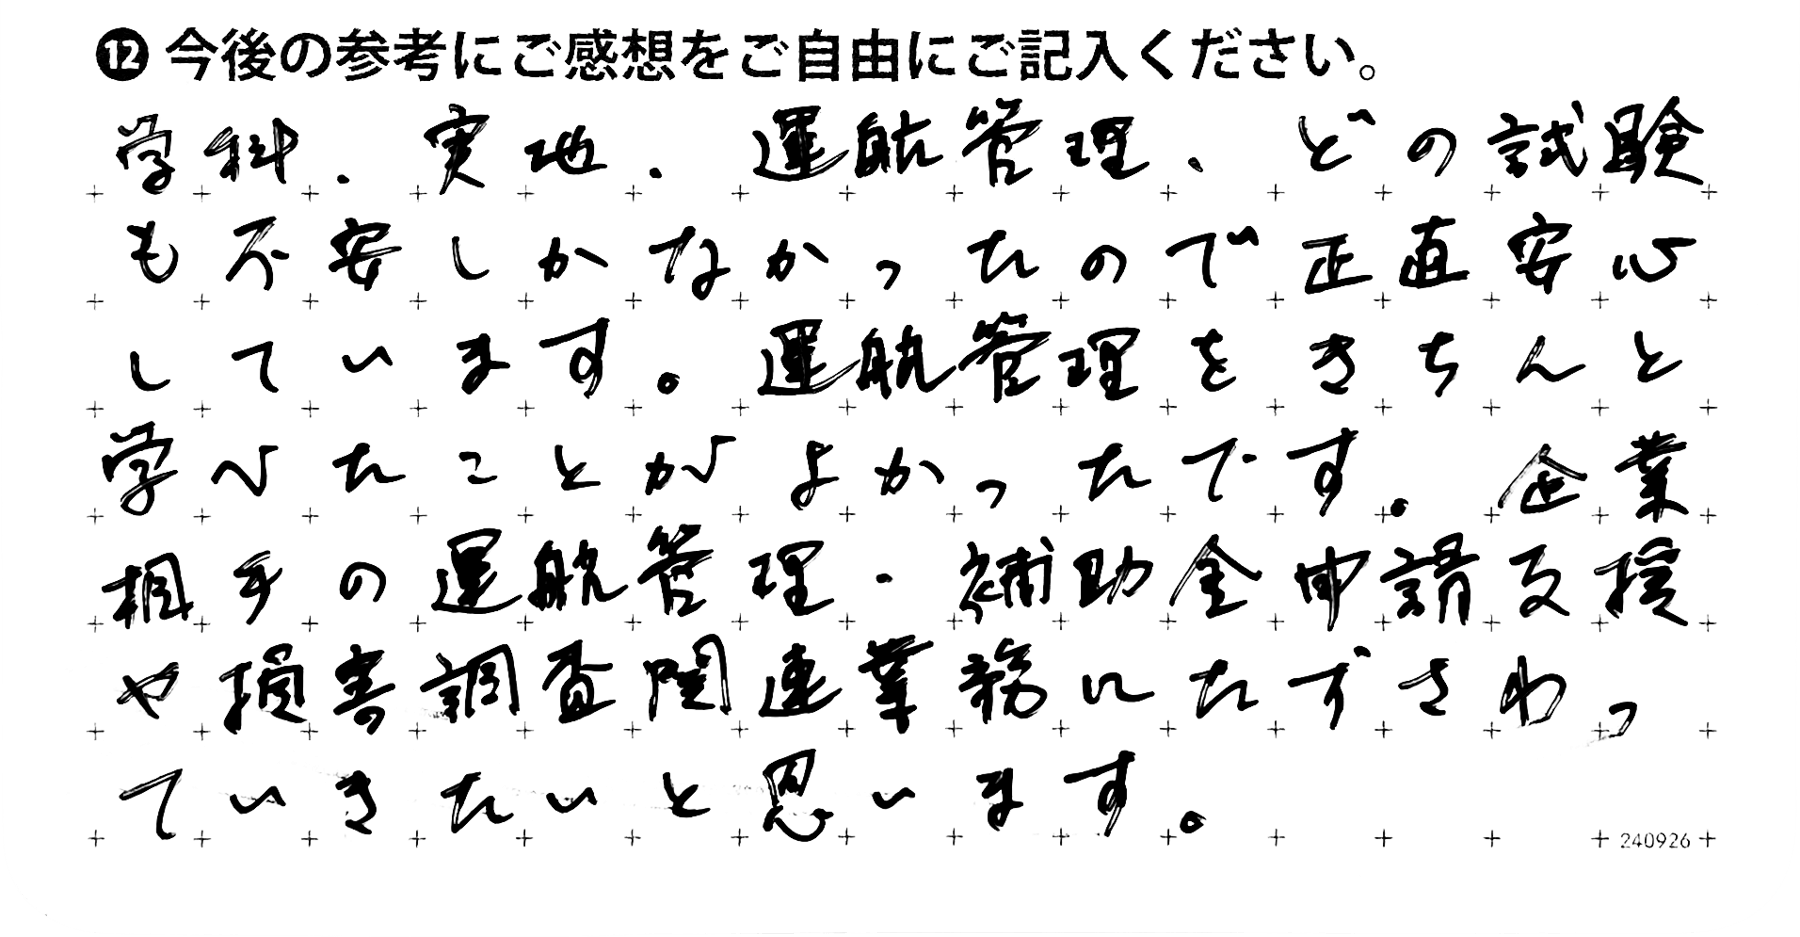 ⓬今後の参考にご感想をご自由にご記入ください。
学科、実地、運航管理、どの試験
も不安しかなかったので正直安心
しています。運航管理をきちんと
学べたことがよかったです。企業
相手の運航管理・補助金申請支援
や損害調査関連業務にたずさわっ
ていきたいと思います。
240926